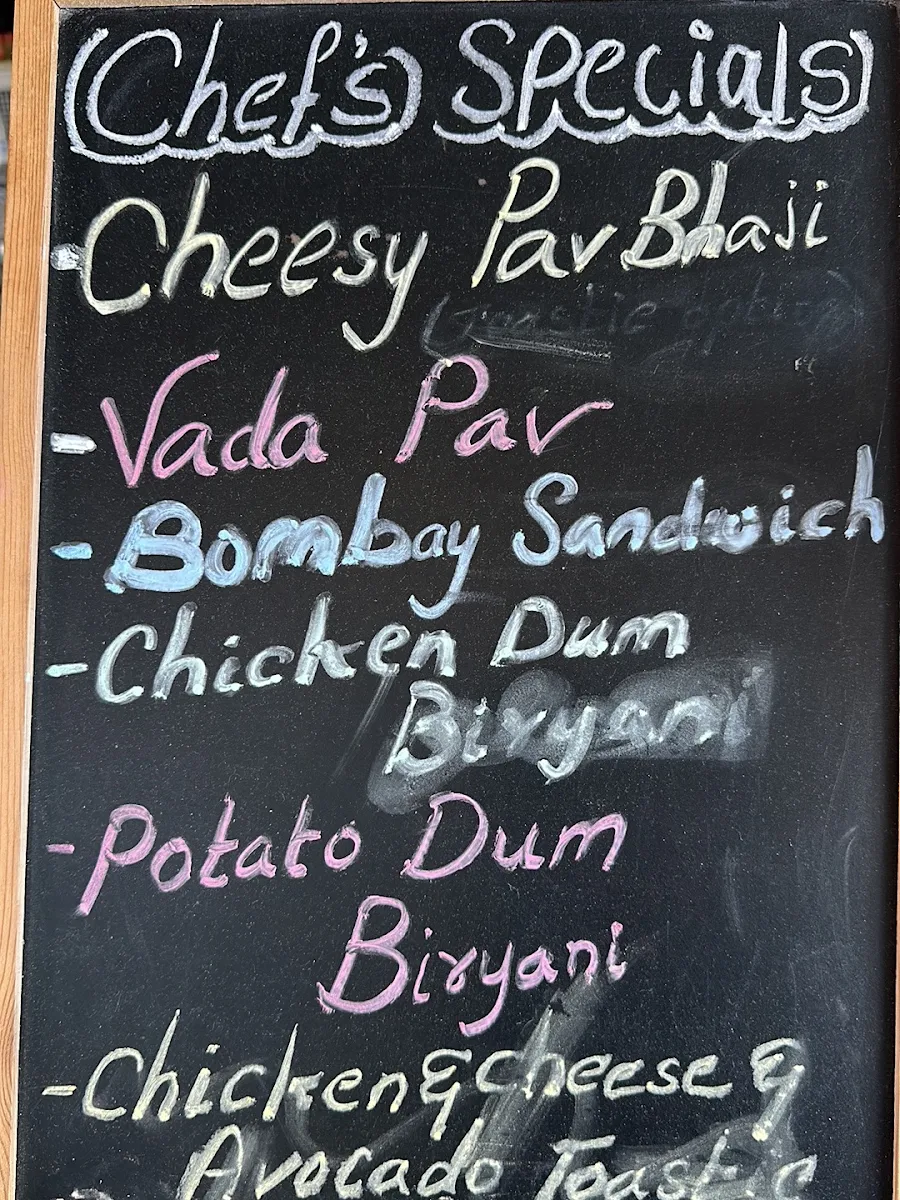 Chef's Specials
Cheesy Pav Bhaji
- Vada Pav
- Bombay Sandwich
- Chicken Dum
Biryani
- Potato Dum
Biryani
- Chicken & cheese &
Avocado Toastie